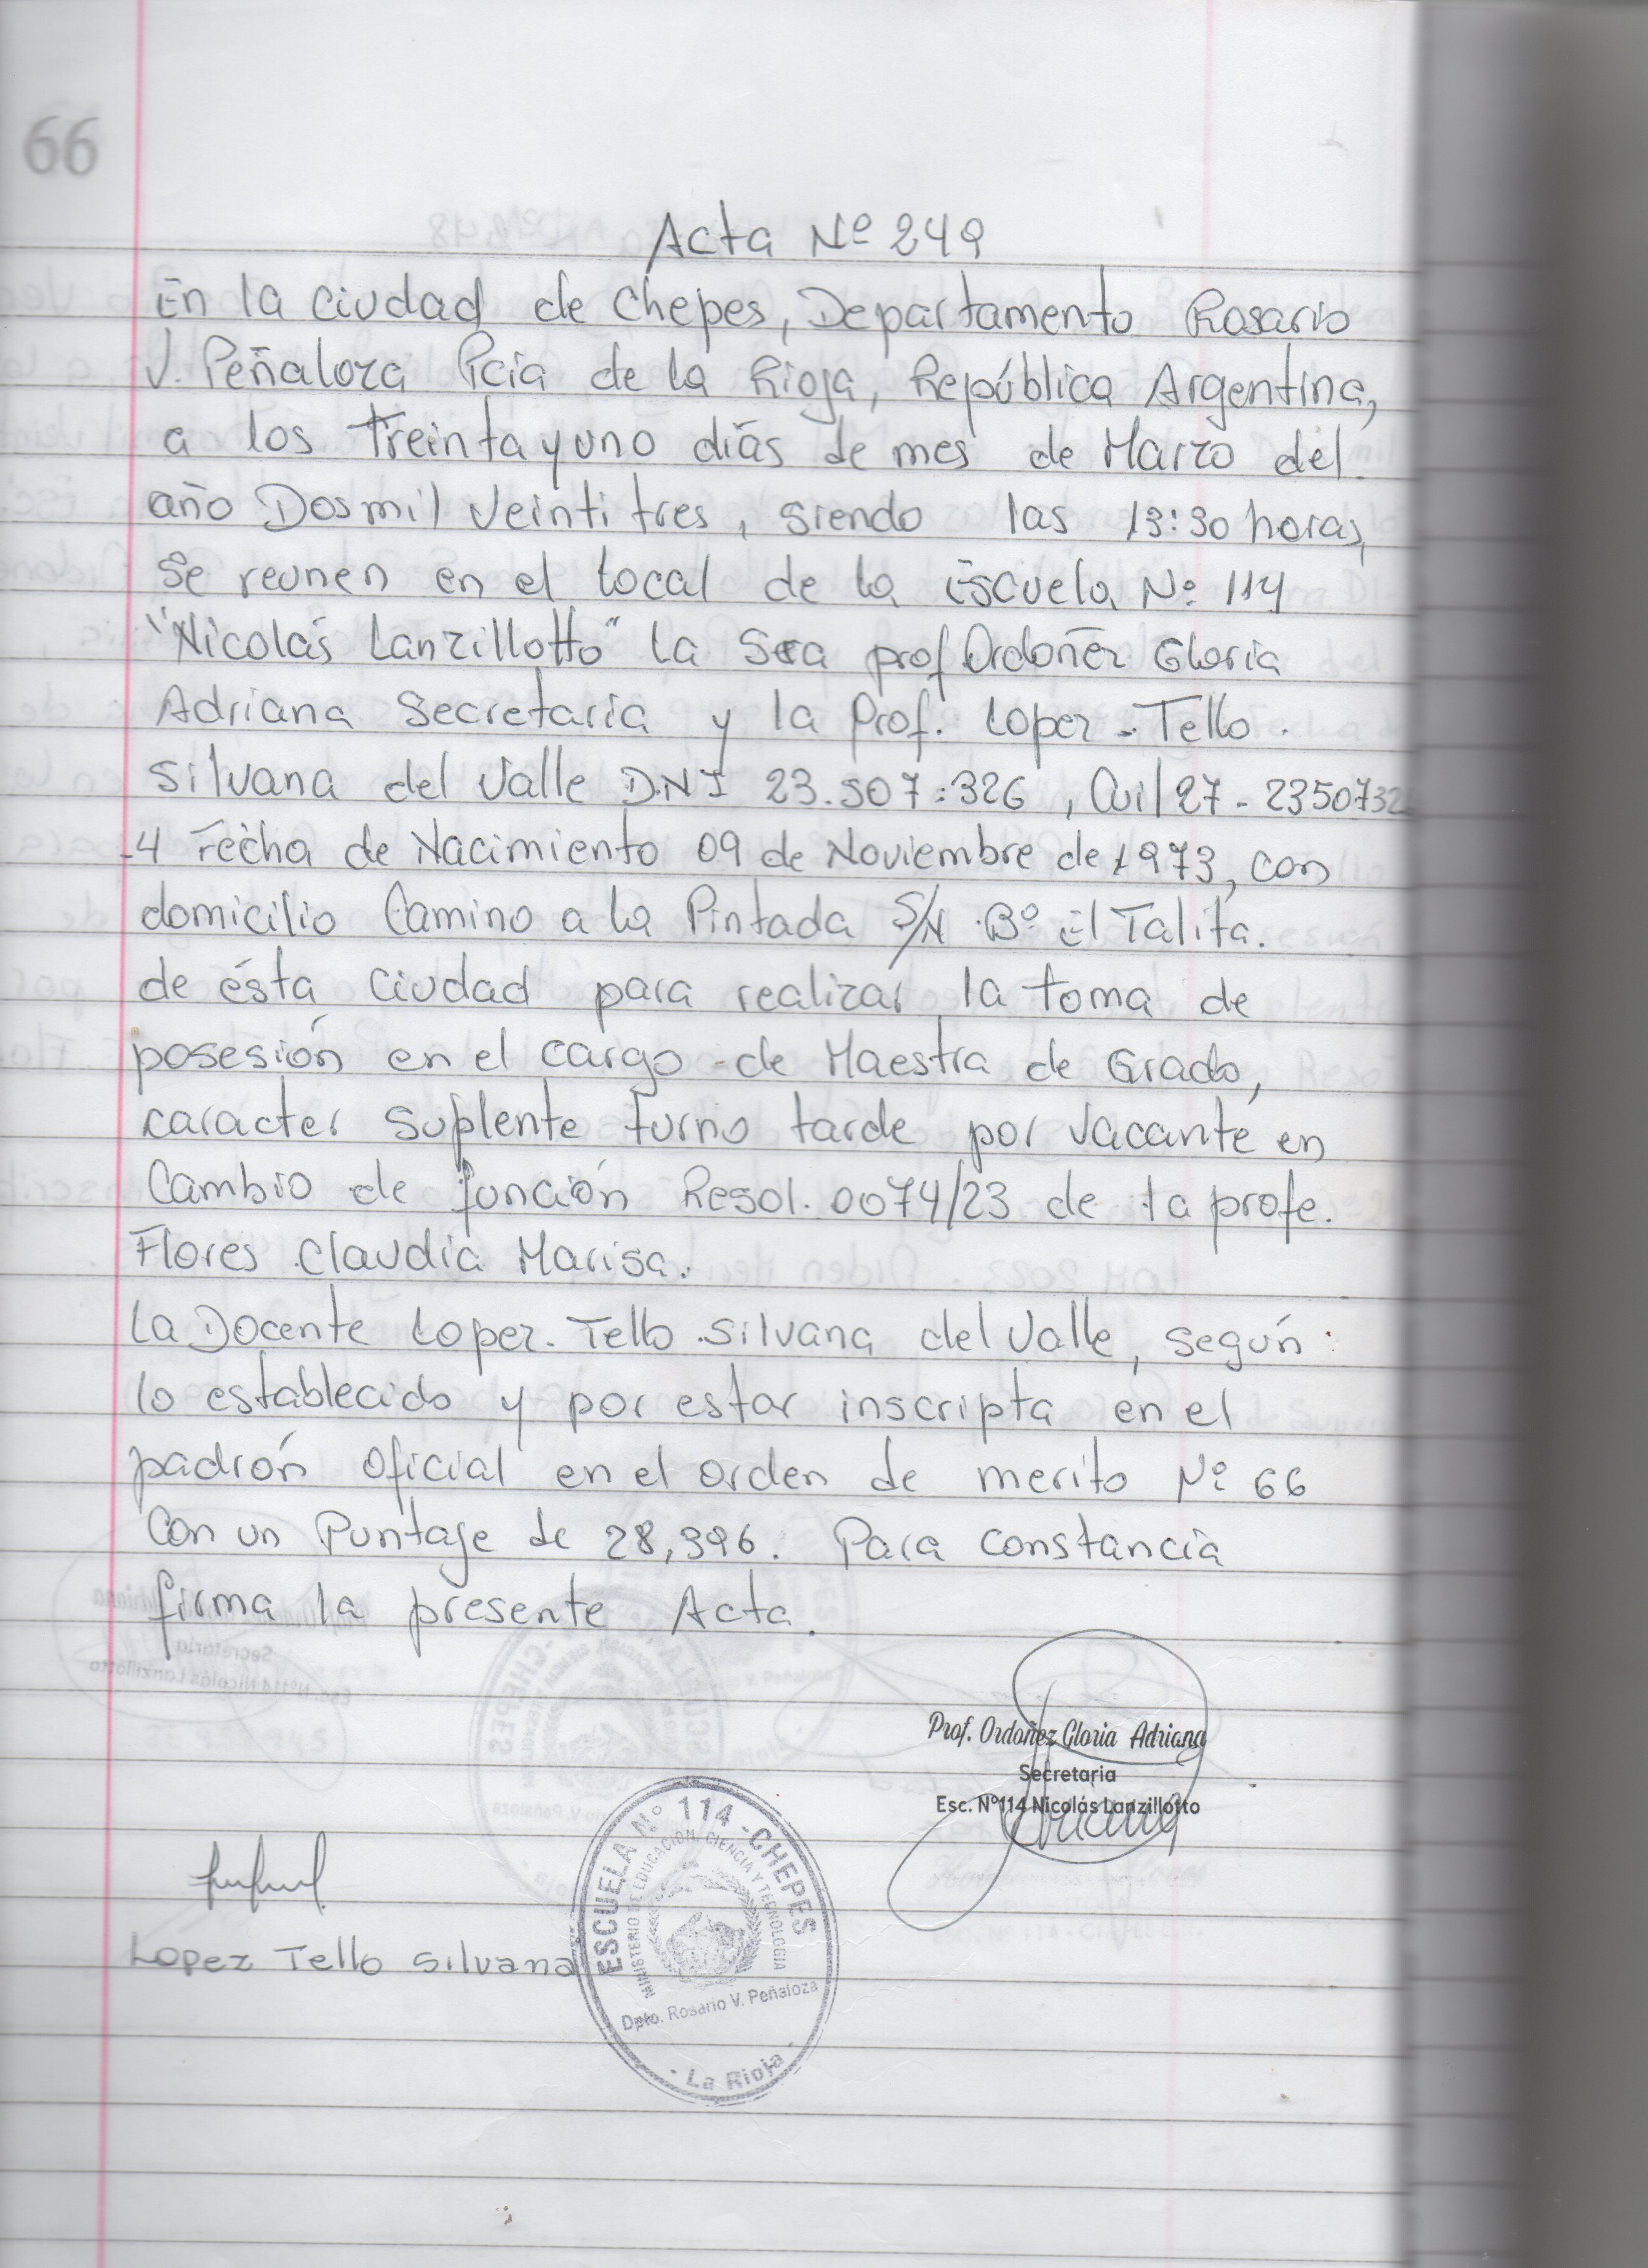 66
Acta Nº 249
En la Ciudad de Chepes, Departamento Rosario
V. Peñaloza Pcia de la Rioja, República Argentina,
a los Treinta y uno días de mes de Marzo del
año Dos mil Veintitres, siendo las 13:30 horas,
se reunen en el local de la Escuela Nº 114
"Nicolás Lanzillotto" la Sra prof Ordoñez Gloria
Adriana Secretaria y la Prof. Lopez - Tello.
Silvana del Valle D.N.I 23.507.326, Cuil 27-2350732
-4 Fecha de Nacimiento 09 de Noviembre de 1973, con
domicilio Camino a la Pintada S/N Bº El Talita.
de ésta Ciudad para realizar la toma de
posesión en el cargo de Maestra de Grado,
caracter Suplente turno tarde por Vacante en
Cambio de función Resol. 0074/23 de la profe.
Flores Claudia Marisa.
La Docente Lopez. Tello Silvana del Valle, según
lo establecido y por estar inscripta en el
padrón oficial en el orden de merito Nº 66
Con un Puntaje de 28,396. Para constancia
firma la presente Acta.
Prof. Ordoñez Gloria Adriana
Secretaria
Esc. Nº114 Nicolás Lanzillotto
Lopez Tello Silvana
ESCUELA Nº 114 - CHEPES
MINISTERIO DE EDUCACIÓN, CIENCIA Y TECNOLOGIA
Dpto. Rosario V. Peñaloza
- La Rioja -